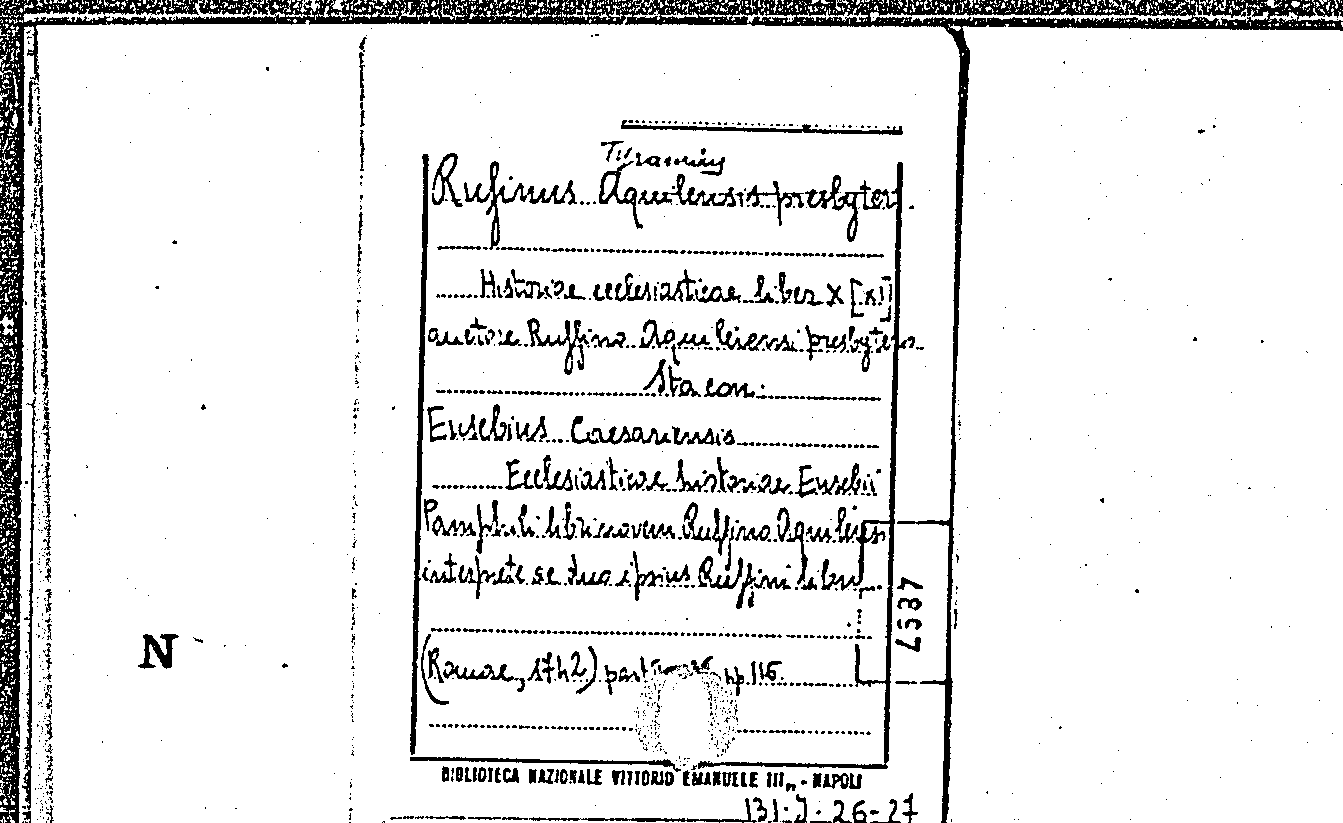 Tyrannius
Rufinus Aquileiensis presbyter.
Historiae ecclesiasticae liber X [XI]
auctore Ruffino Aquileiensi presbytero.
Sta con:
Eusebius Caesariensis
Ecclesiasticae historiae Eusebii
Pamphili libri novem Ruffino Aquileien
interprete ac duo ipsius Ruffini libri
4587
N
(Romae, 1742) pp 116.
BIBLIOTECA NAZIONALE VITTORIO EMANUELE III„ - NAPOLI
131-J-26-27